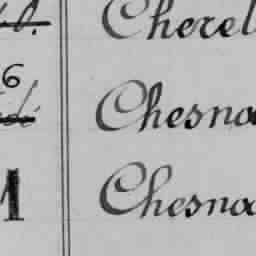 Cherel
6 Chesna
1 Chesna